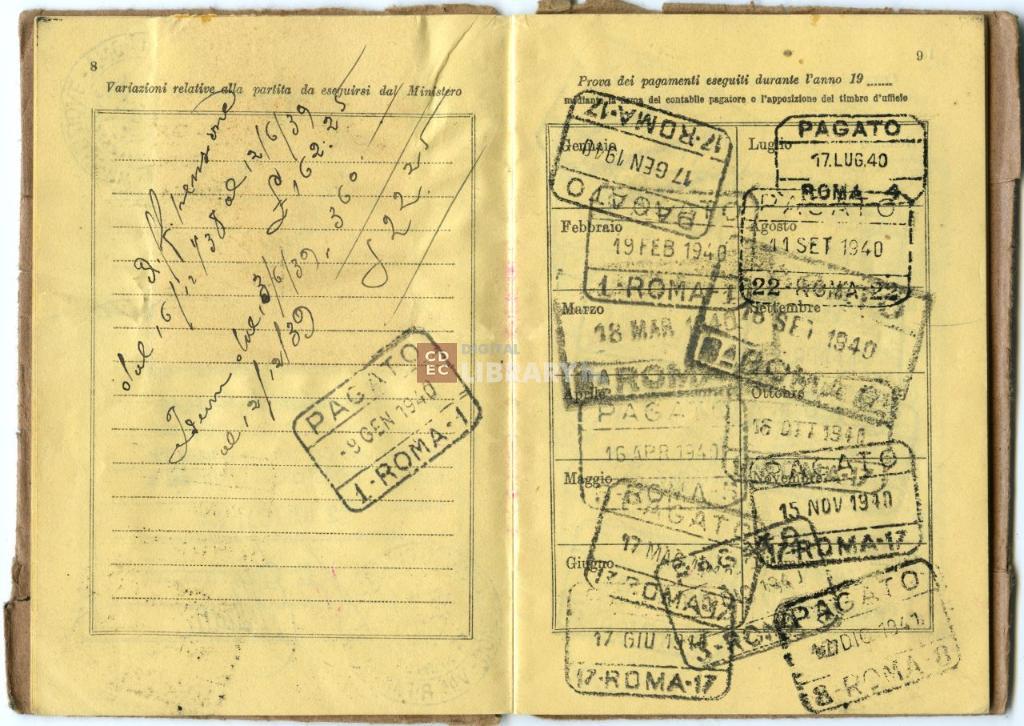 8
Variazioni relative alla partita da eseguirsi dal Ministero
Diff pensione
dal 16/12/38 al 12/6/39
£ 162.25
Idem dal 13/6/39
al 12/12/39
360
£ 522.25
PAGATO
-9 GEN 1940
1-ROMA-1
CD
EC
DIGITAL
LIBRARY
9
Prova dei pagamenti eseguiti durante l'anno 19
mediante la firma del contabile pagatore o l'apposizione del timbro d'ufficio
Gennaio
17-ROMA-17
17 GEN 1940
PAGATO
Luglio
PAGATO
17.LUG.40
ROMA 4
Febbraio
19 FEB 1940
1-ROMA
Agosto
PAGATO
11 SET 1940
22-ROMA-22
Marzo
18 MAR
ROMA
Settembre
18 SET 1940
ROMA
Aprile
PAGATO
16 APR 1940
ROMA
Ottobre
16 OTT 1940
Maggio
PAGATO
17 MAG
17-ROMA-17
Novembre
PAGATO
15 NOV 1940
17-ROMA-17
Giugno
17 GIU
17-ROMA-17
3-ROMA
PAGATO
DIC 1941
8-ROMA-8